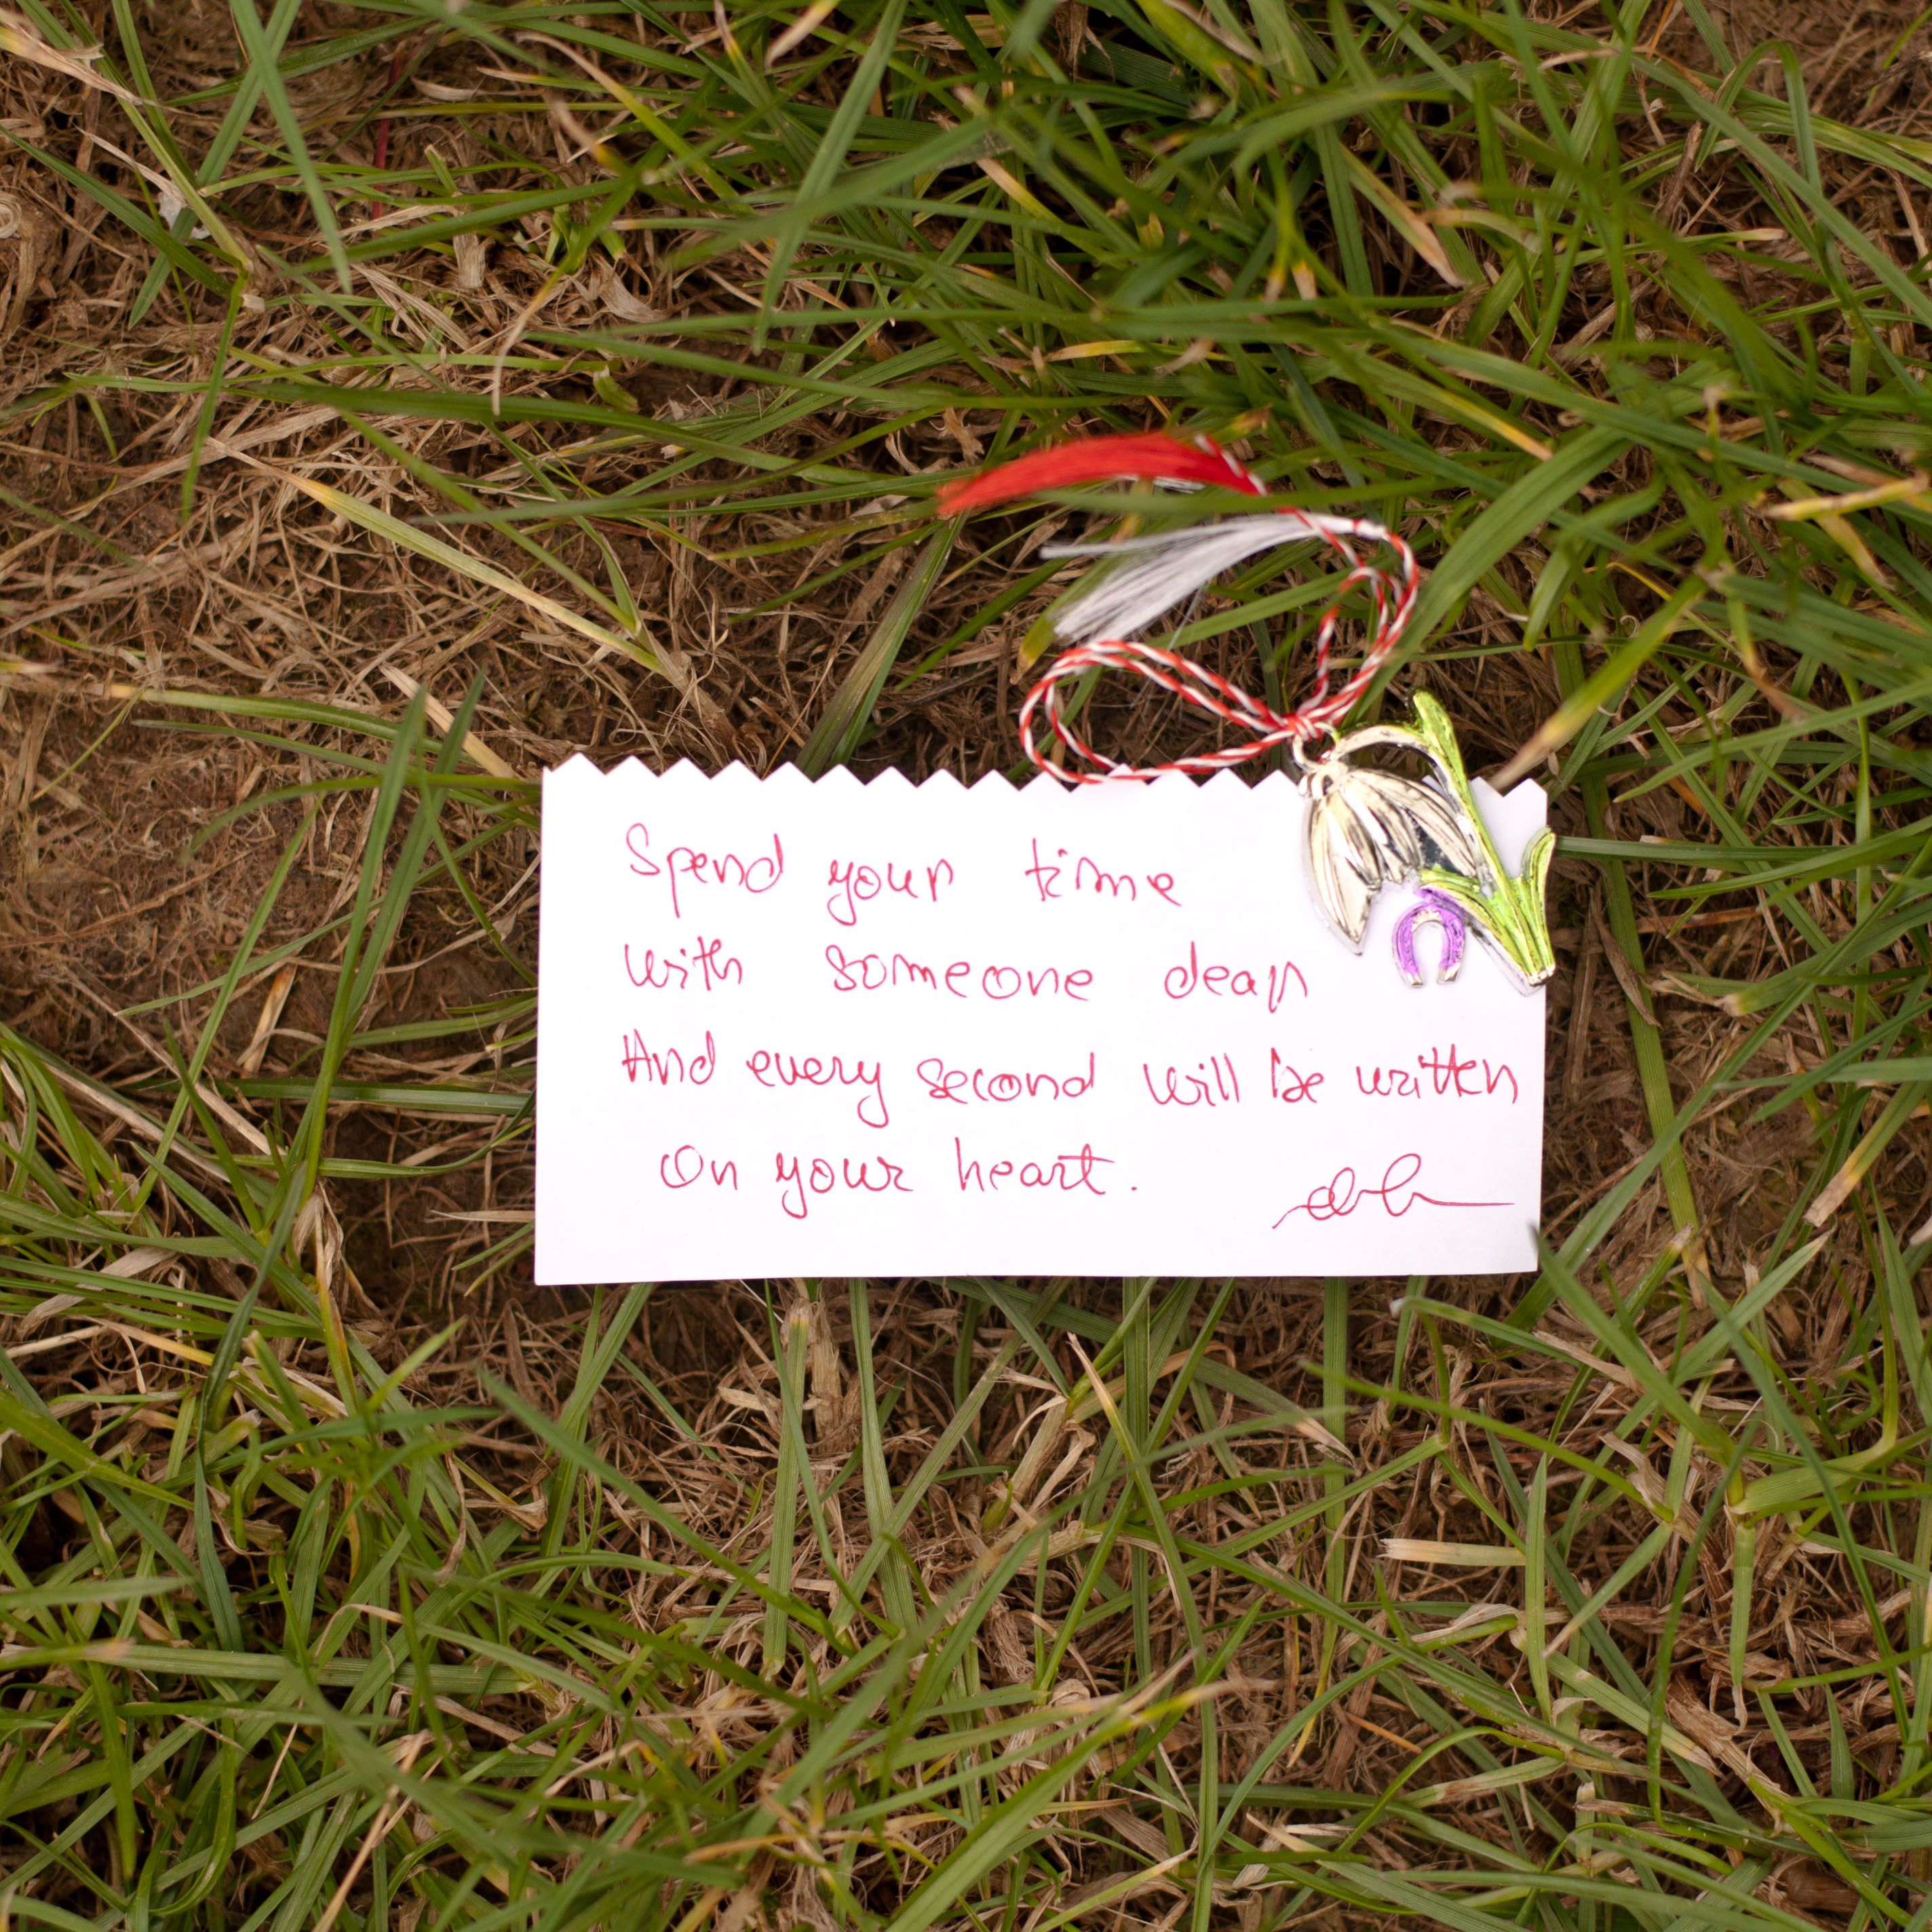 Spend your time
with someone dear
And every second will be written
on your heart.